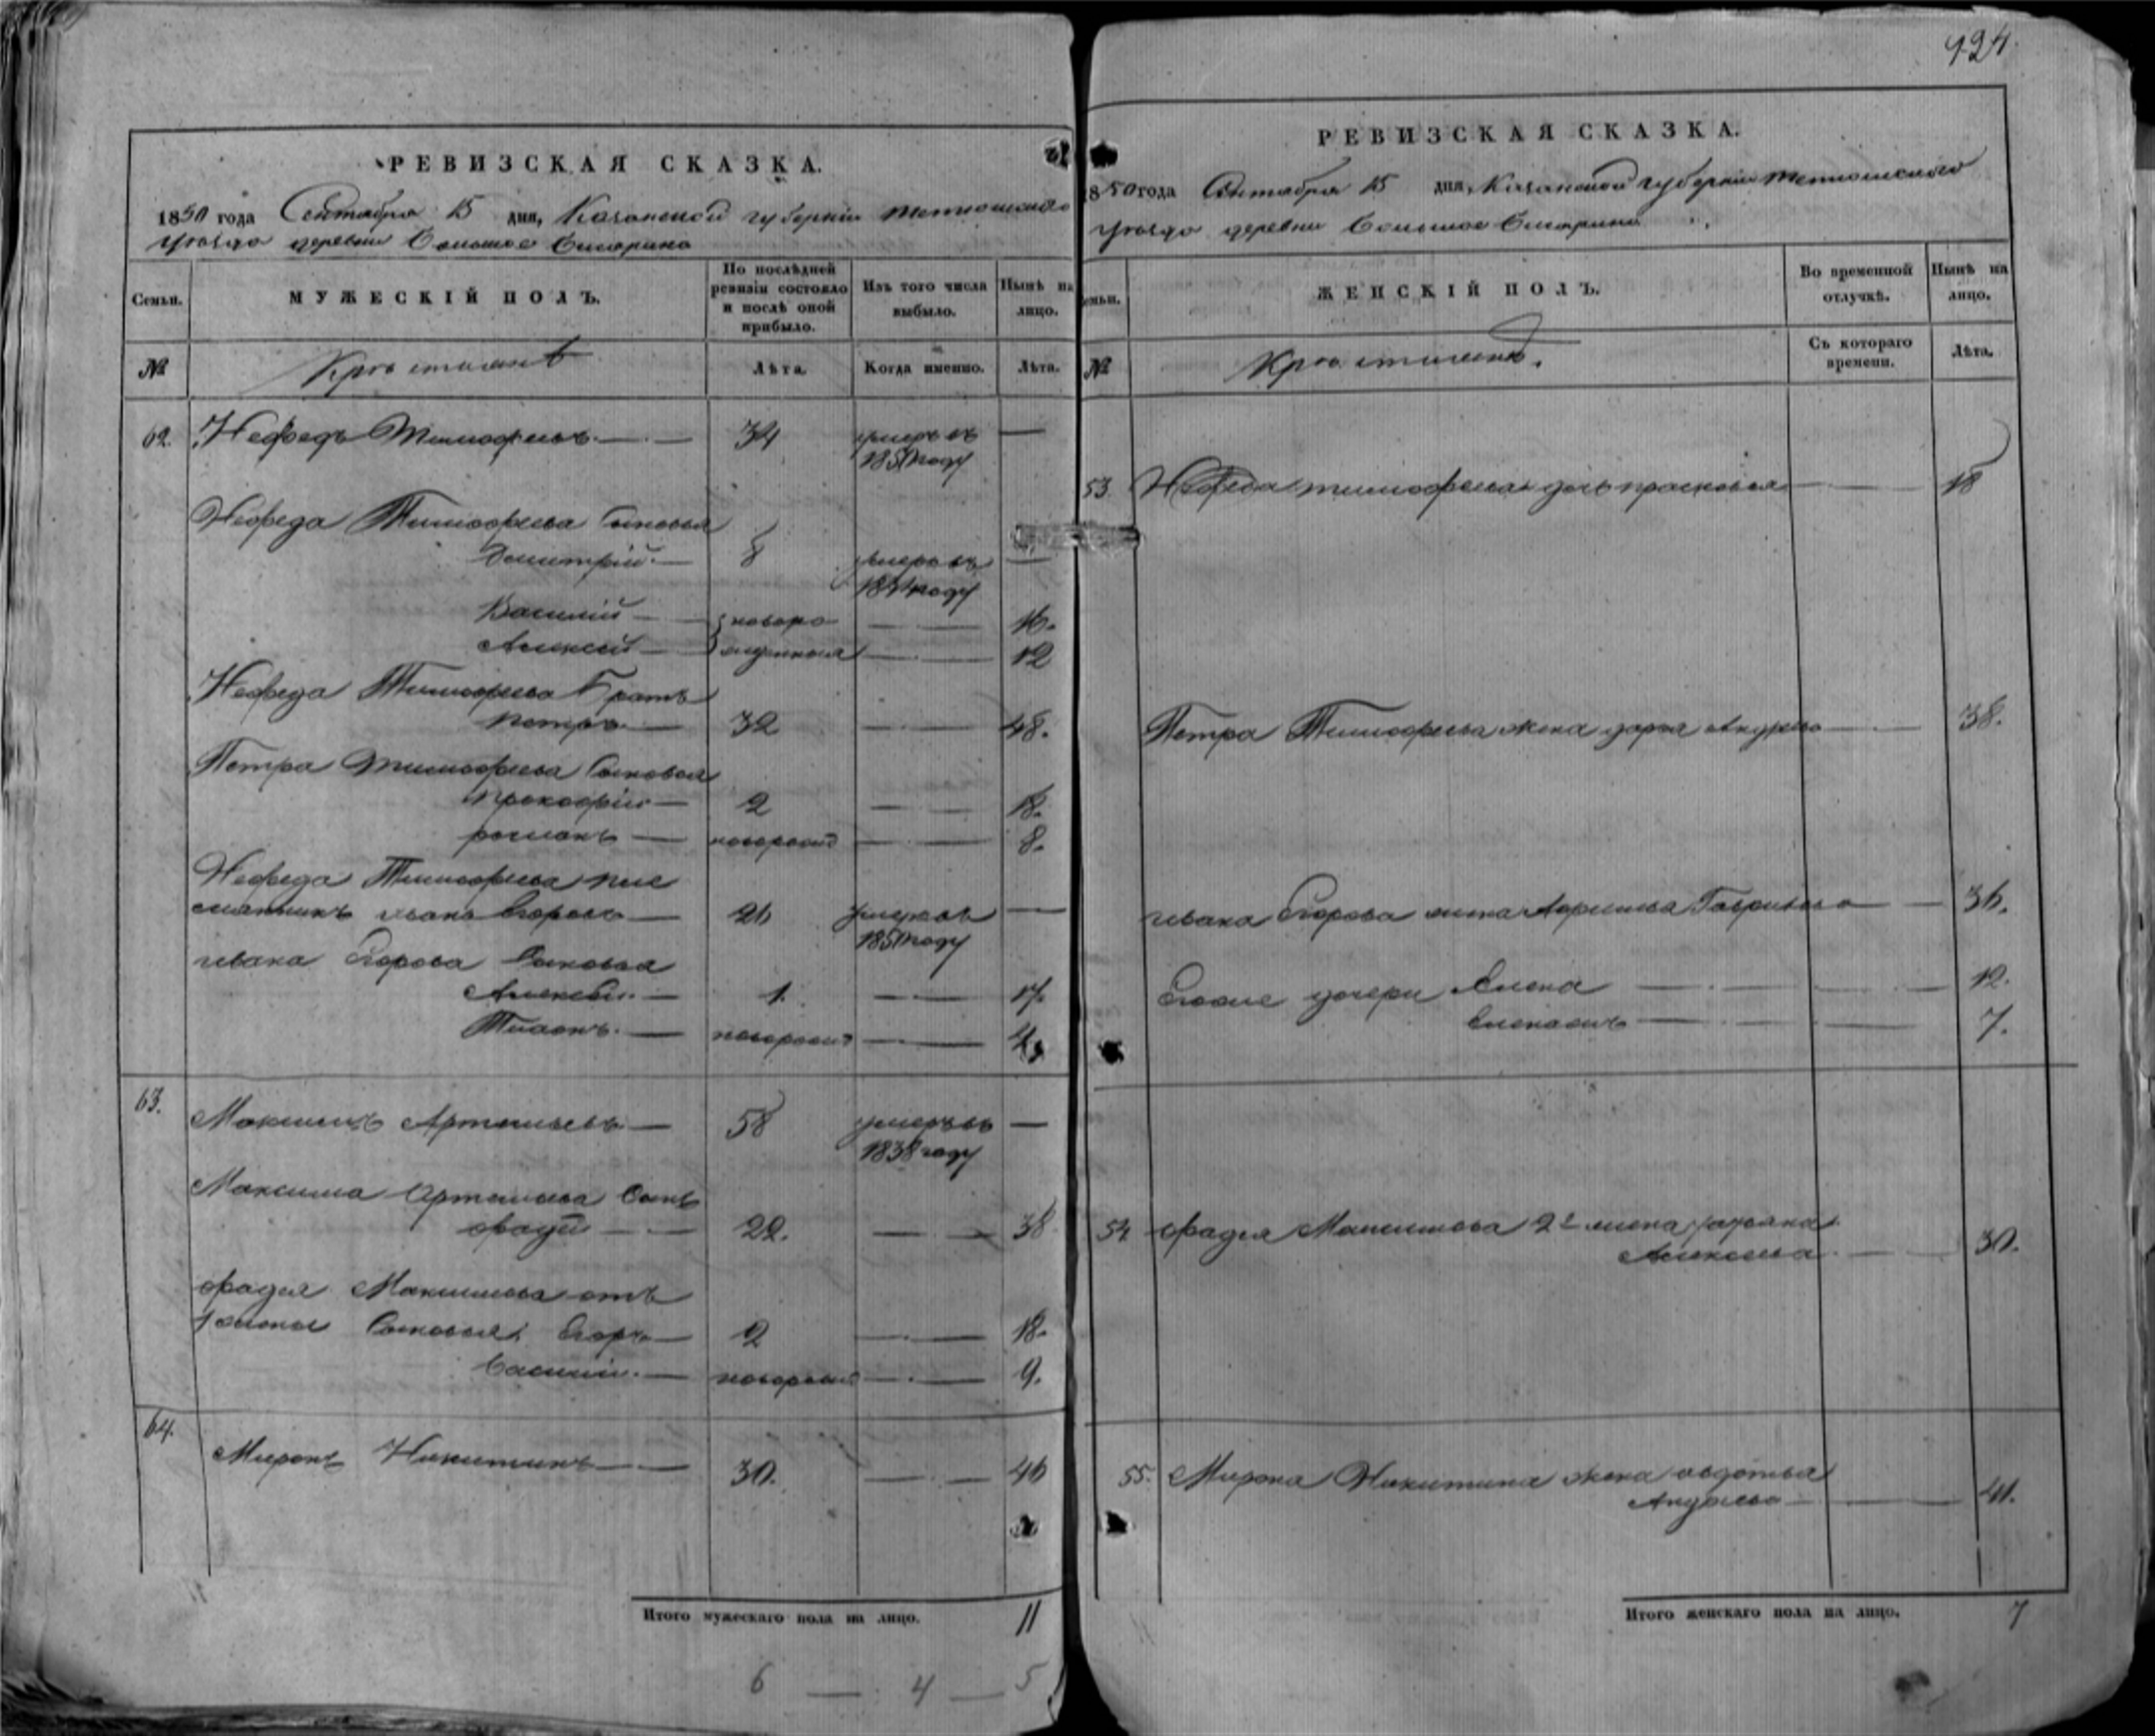 РЕВИЗСКАЯ СКАЗКА.
1850 года Сентября 15 дня, Казанской губернiи Тетюшскаго
уѣзда деревни Большое
Семьи.
МУЖЕСКІЙ ПОЛЪ.
По послѣдней ревизіи состояло и послѣ оной прибыло.
Изъ того числа выбыло.
Нынѣ на лицо.
№
Крестьянѣ
Лѣта.
Когда именно.
Лѣта.
62. Нефедъ Тимофеевъ 34 умеръ въ —
1850 году
Нефеда Тимофеева Сыновья
Дмитрій 8 умеръ въ —
году
Василій новоро 16.
Алексей жденныя 12
Нефеда Тимофеева Братъ
Петръ 32 48.
Петра Тимофеева Сыновья
Прокофій 2 18.
романъ новорожд 8.
Нефеда Тимофеева пле
мянникъ иванъ Егоровъ 26 умеръ въ —
1850 году
ивана Егорова Сыновья
Алексей 1. 17.
новорожд
63. Максимъ Артемьевъ 58 умеръ въ —
1838 году
Максима Артемьева Сынъ
фадей 22. 38
фадея Максимова отъ
Сыновья Егоръ 2 18.
Василій новорожд 9.
64. Миронъ Никитинъ 30. 46
Итого мужескаго пола на лицо. 11
6 — 4 — 5
924
РЕВИЗСКАЯ СКАЗКА.
1850 года Сентября 15 дня, Казанской губернiи Тетюшскаго
уѣзда деревни Большое
Семьи.
ЖЕНСКІЙ ПОЛЪ.
Во временной отлучкѣ.
Нынѣ на лицо.
№
Съ котораго времени.
Лѣта.
53. Нефеда тимофеева дочь прасковья 18
Петра Тимофеева жена дарья Андреева 38.
ивана Егорова жена Гаврилова 36.
Егоже дочери Елена 12.
7.
54 фадея Максимова 2я жена татьяна
Алексеева 30.
55. Мирона Никитина жена авдотья
Андреева 41.
Итого женскаго пола на лицо. 7